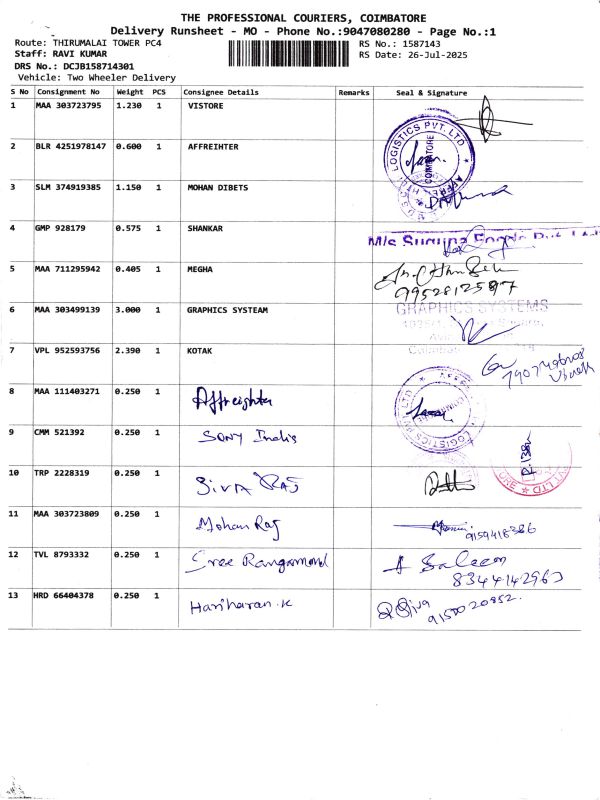 THE PROFESSIONAL COURIERS, COIMBATORE
Delivery Runsheet - MO - Phone No.:9047080280 - Page No.:1
Route: THIRUMALAI TOWER PC4 RS No.: 1587143
Staff: RAVI KUMAR RS Date: 26-Jul-2025
DRS No.: DCJB158714301
Vehicle: Two Wheeler Delivery
S No Consignment No Weight PCS Consignee Details Remarks Seal & Signature
1 MAA 303723795 1.230 1 VISTORE
2 BLR 4251978147 0.600 1 AFFREIHTER
LOGISTICS PVT. LTD
COIMBATORE
3 SLM 374919385 1.150 1 MOHAN DIBETS
4 GMP 928179 0.575 1 SHANKAR
M/s Suguna Foods Pvt. Ltd
5 MAA 711295942 0.405 1 MEGHA
6 MAA 303499139 3.000 1 GRAPHICS SYSTEAM
GRAPHICS SYSTEMS
7 VPL 952593756 2.390 1 KOTAK
8 MAA 111403271 0.250 1 Affreighter
9 CMM 521392 0.250 1 SONY India
10 TRP 2228319 0.250 1 SIVA RAJ
11 MAA 303723809 0.250 1 Mohan Raj
9159418386
12 TVL 8793332 0.250 1 Sree Rangammal
A Saleem
8344142963
13 HRD 66404378 0.250 1 Hariharan.K
Siva
9150020852.